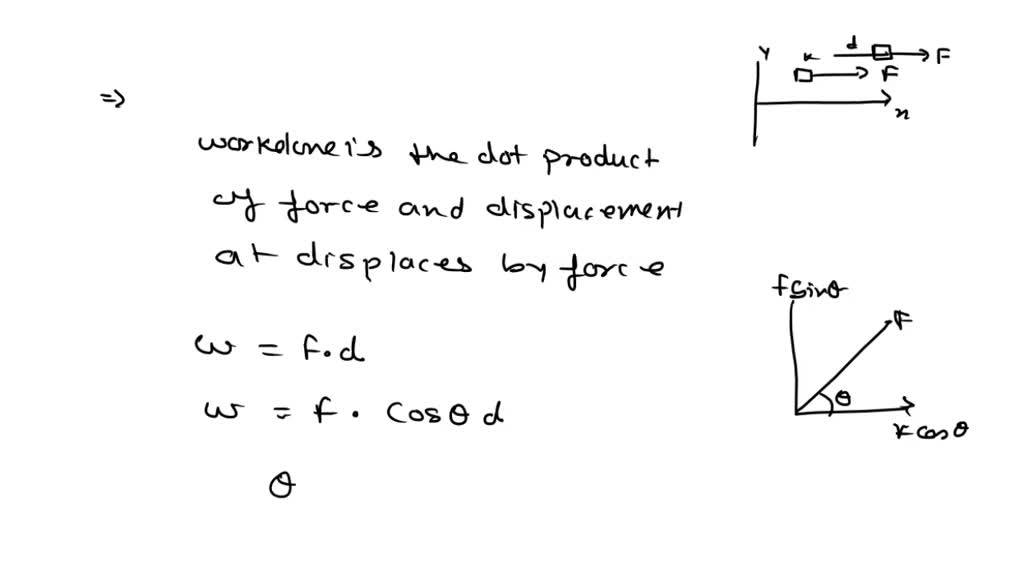 ⇒
workdone is the dot product
of force and displacement
at displaces by force
w = f.d
w = f . Cosθ d
θ
Y
d
F
F
x
fsinθ
F
θ
F cos θ